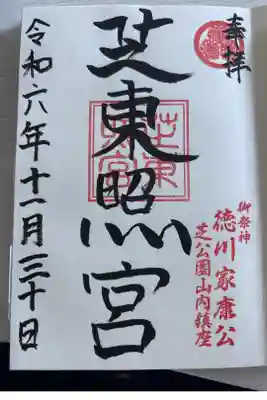 奉拝
御祭神
徳川家康公
芝公園山内鎮座
芝東照宮
令和六年十一月三十日